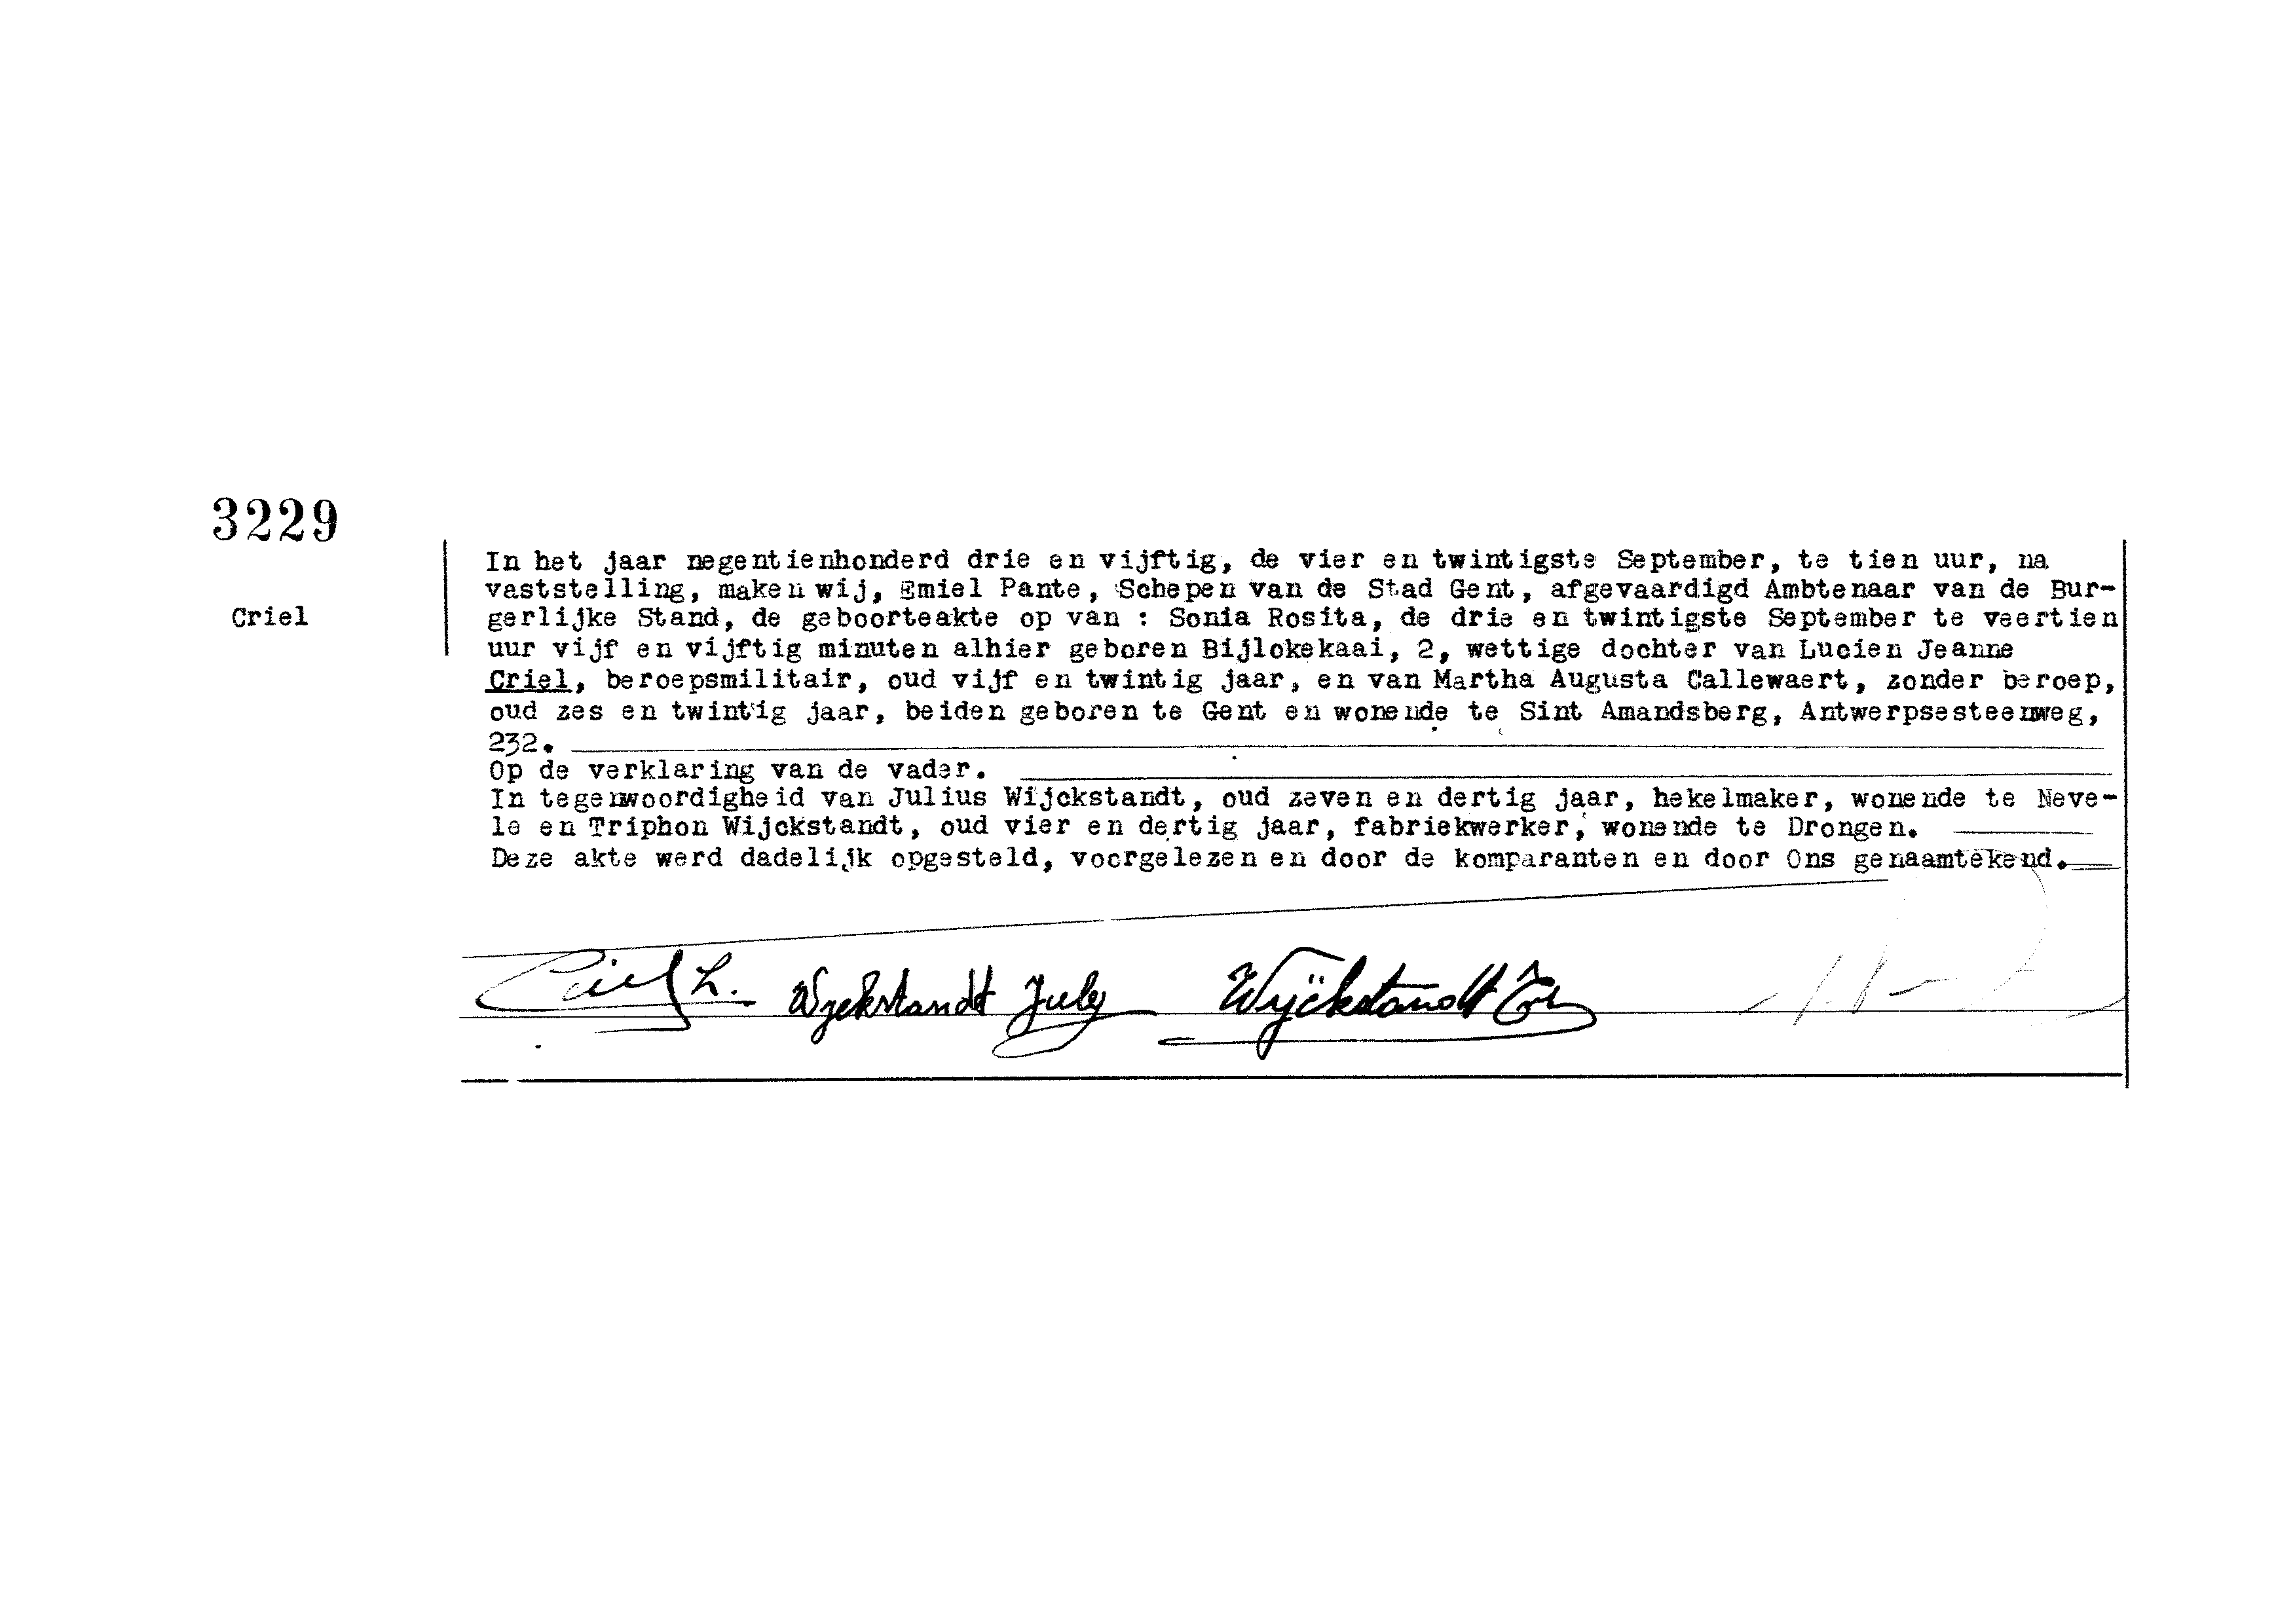 3229
Criel
In het jaar negentienhonderd drie en vijftig, de vier en twintigste September, te tien uur, na
vaststelling, maken wij, Emiel Pante, Schepen van de Stad Gent, afgevaardigd Ambtenaar van de Bur-
gerlijke Stand, de geboorteakte op van : Sonia Rosita, de drie en twintigste September te veertien
uur vijf en vijftig minuten alhier geboren Bijlokekaai, 2, wettige dochter van Lucien Jeanne
Criel, beroepsmilitair, oud vijf en twintig jaar, en van Martha Augusta Callewaert, zonder beroep,
oud zes en twintig jaar, beiden geboren te Gent en wonende te Sint Amandsberg, Antwerpsesteenweg,
232.
Op de verklaring van de vader.
In tegenwoordigheid van Julius Wijckstandt, oud zeven en dertig jaar, hekelmaker, wonende te Neve-
le en Triphon Wijckstandt, oud vier en dertig jaar, fabriekwerker, wonende te Drongen.
Deze akte werd dadelijk opgesteld, voorgelezen en door de komparanten en door Ons genaamtekend.
Criel L. Wyckstandt July Wijckstandt